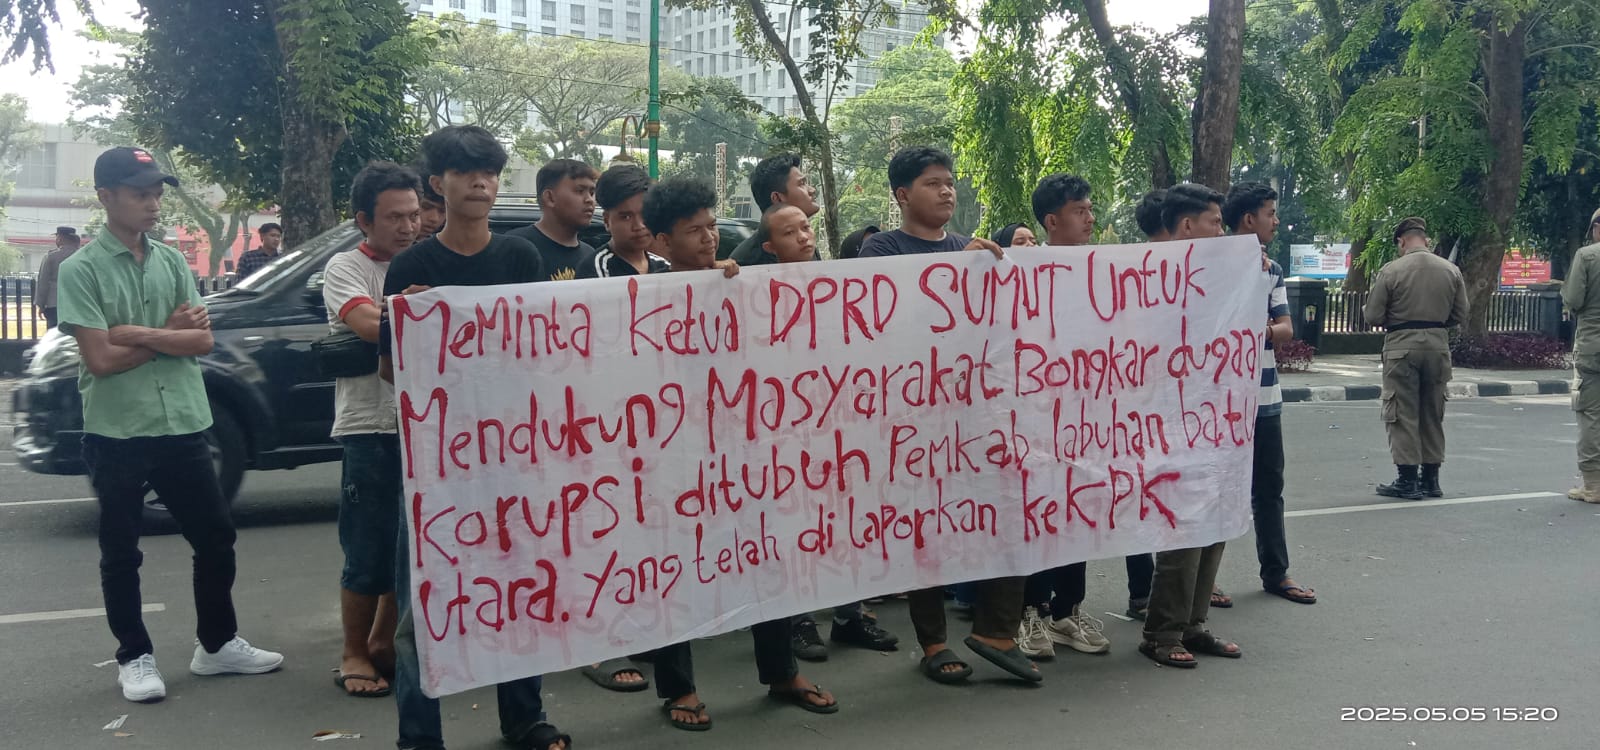 Meminta Ketua DPRD SUMUT Untuk
Mendukung Masyarakat Bongkar dugaan
Korupsi ditubuh Pemkab labuhan batu
Utara. Yang telah di laporkan keKPK
2025.05.05 15:20